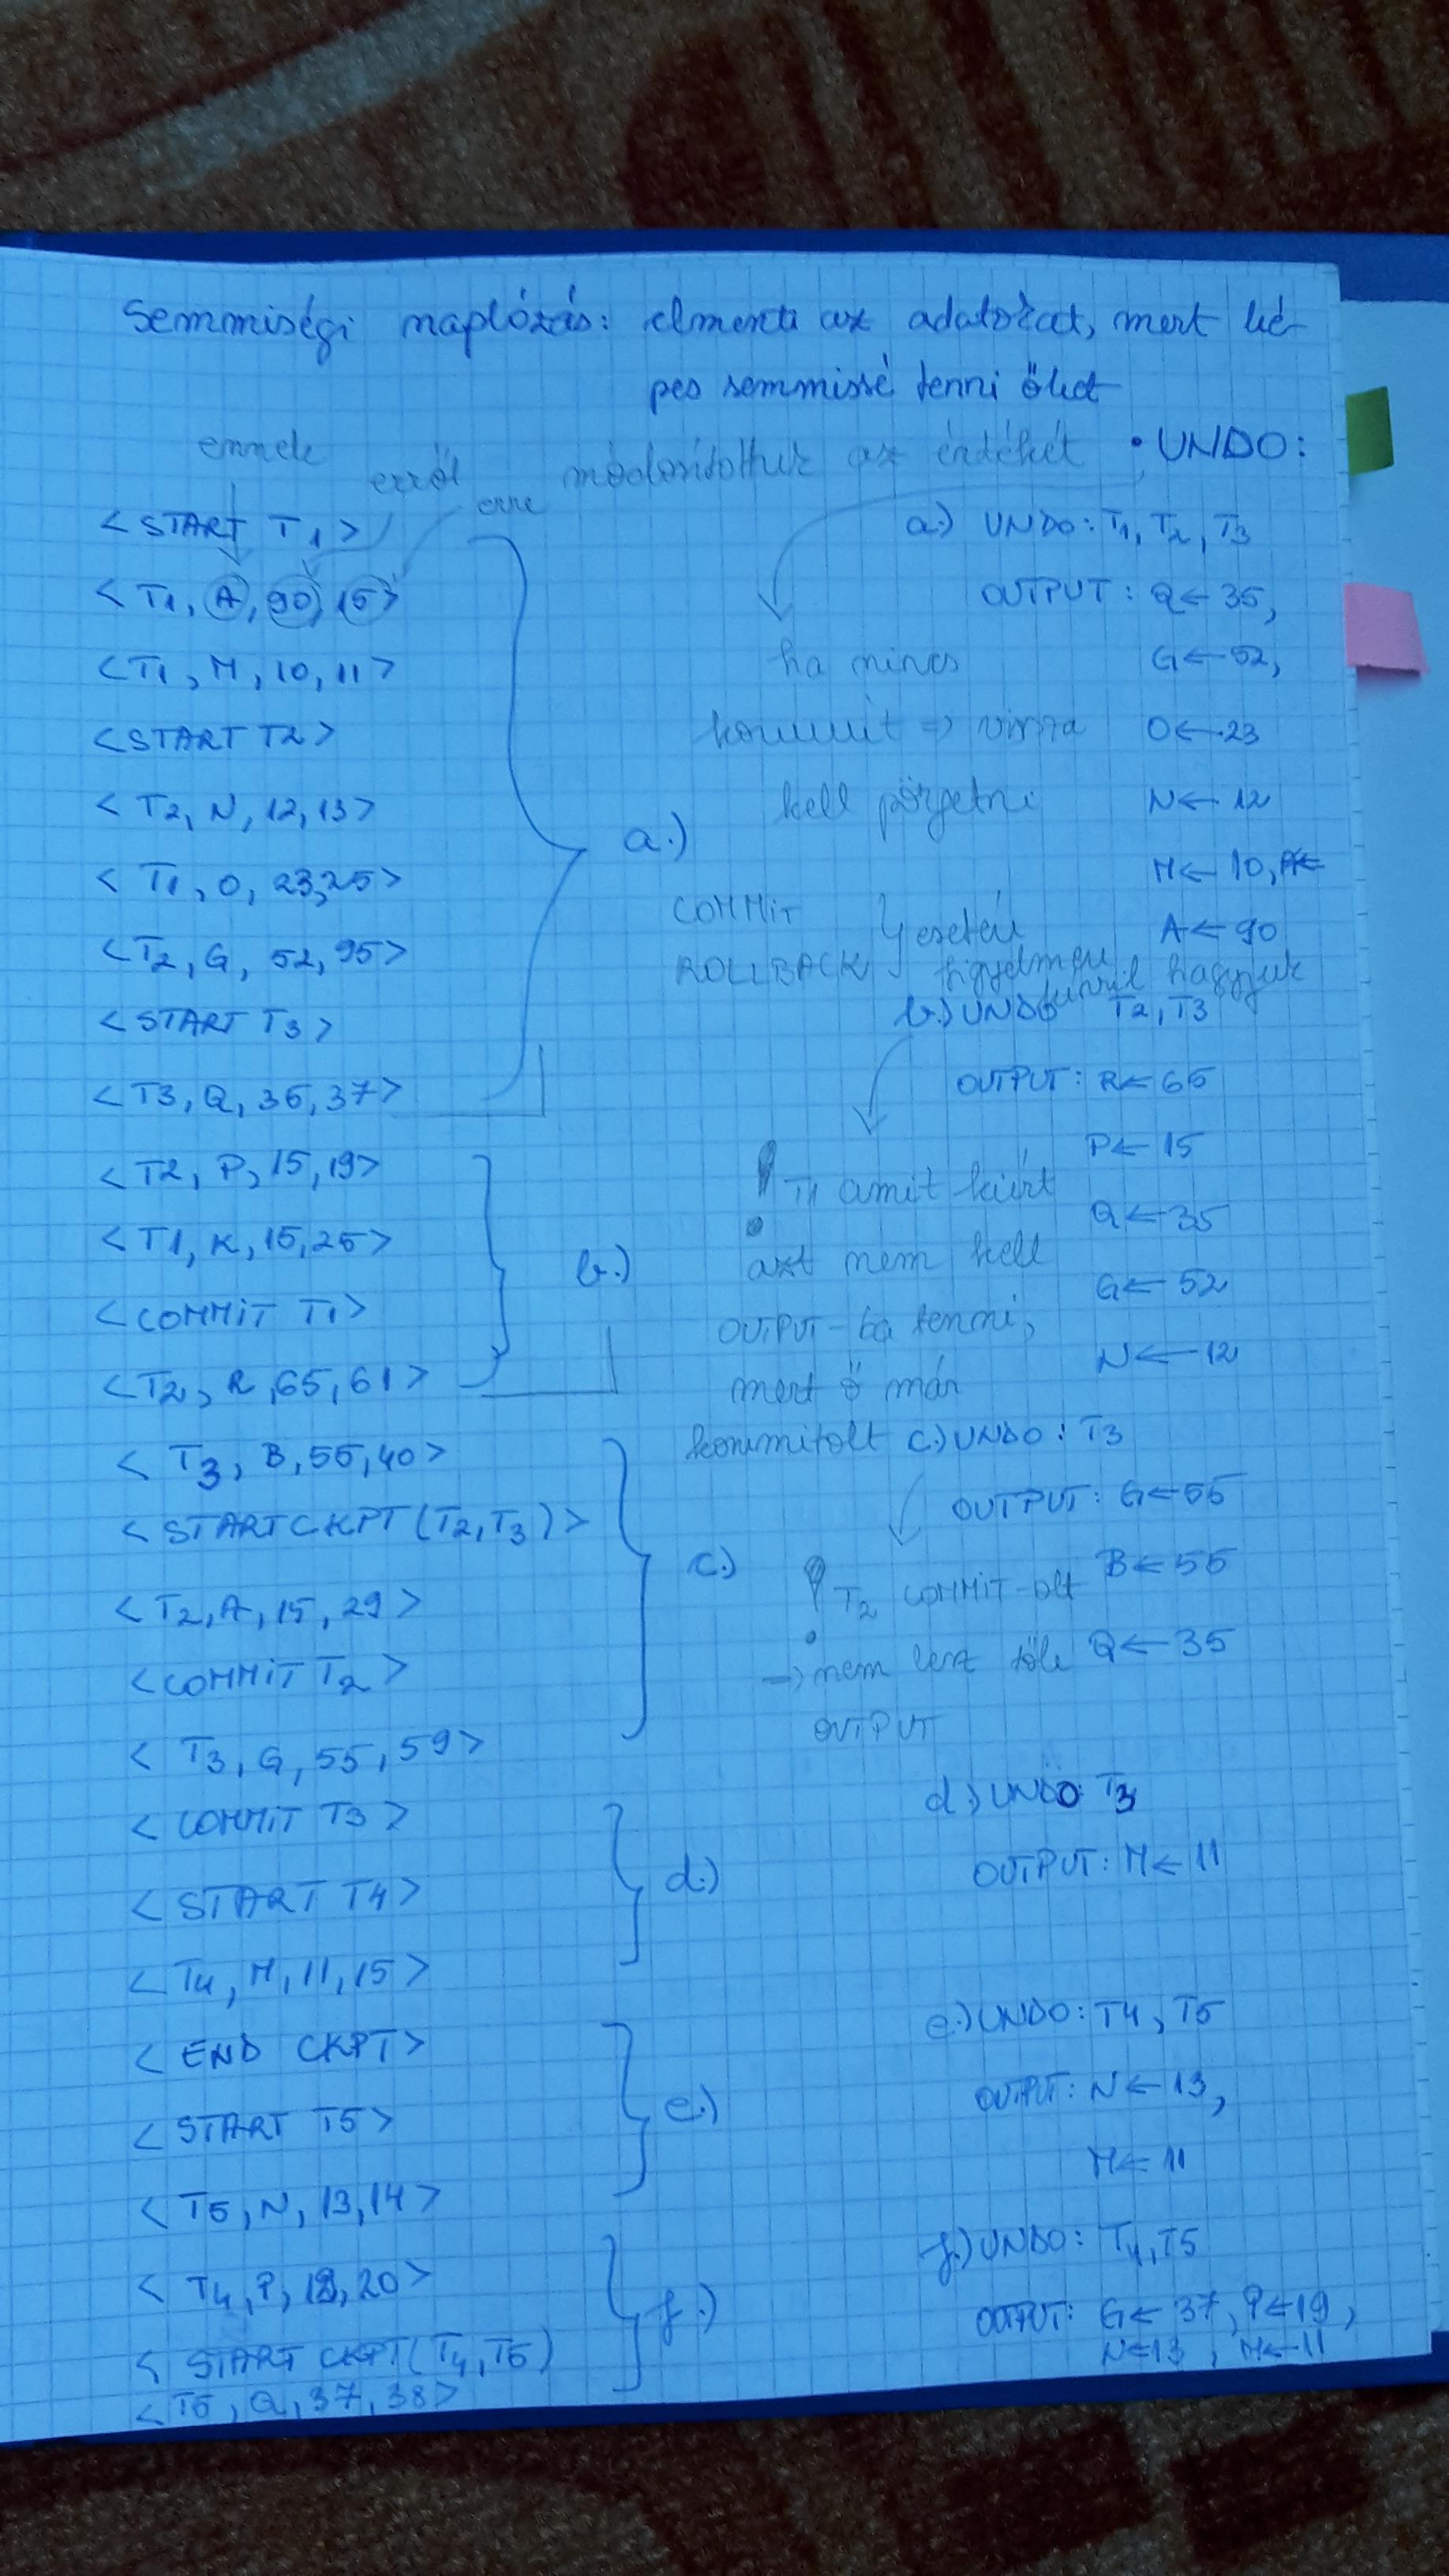 Semmiségi naplózás: elmenti az adatokat, mert ké-
pes semmissé tenni őket
ennek erről erre módosítottuk az értékét • UNDO:
<START T1>
<T1, A, 90, 15>
<T1, M, 10, 11>
<START T2>
<T2, N, 12, 13>
<T1, O, 23, 25>
<T2, G, 52, 95>
<START T3>
<T3, Q, 35, 37>
a.)
<T2, P, 15, 19>
<T1, K, 15, 25>
<COMMIT T1>
<T2, R, 65, 61>
b.)
<T3, B, 55, 40>
<START CKPT (T2, T3)>
<T2, A, 15, 29>
<COMMIT T2>
<T3, G, 55, 59>
c.)
<COMMIT T3>
<START T4>
<T4, M, 11, 15>
d.)
<END CKPT>
<START T5>
<T5, N, 13, 14>
e.)
<T4, P, 19, 20>
<START CKPT (T4, T5)
<T5, Q, 37, 38>
f.)
a.) UNDO: T1, T2, T3
OUTPUT: Q ← 35,
G ← 52,
O ← 23
N ← 12
M ← 10, A ←
A ← 90
ha nincs
kommit ⇒ vissza
kell pörgetni
COMMIT
ROLLBACK } esetén
figyelmen kívül hagyjuk
b.) UNDO T2, T3
OUTPUT: R ← 65
P ← 15
Q ← 35
G ← 52
N ← 12
! T1 amit kiírt
azt nem kell
OUTPUT-ba tenni,
mert ő már
kommitolt
c.) UNDO: T3
OUTPUT: G ← 55
B ← 55
Q ← 35
! T2 COMMIT-olt
→ nem lesz tőle
OUTPUT
d.) UNDO T3
OUTPUT: M ← 11
e.) UNDO: T4, T5
OUTPUT: N ← 13,
M ← 11
f.) UNDO: T4, T5
OUTPUT: G ← 37, P ← 19,
N ← 13, M ← 11